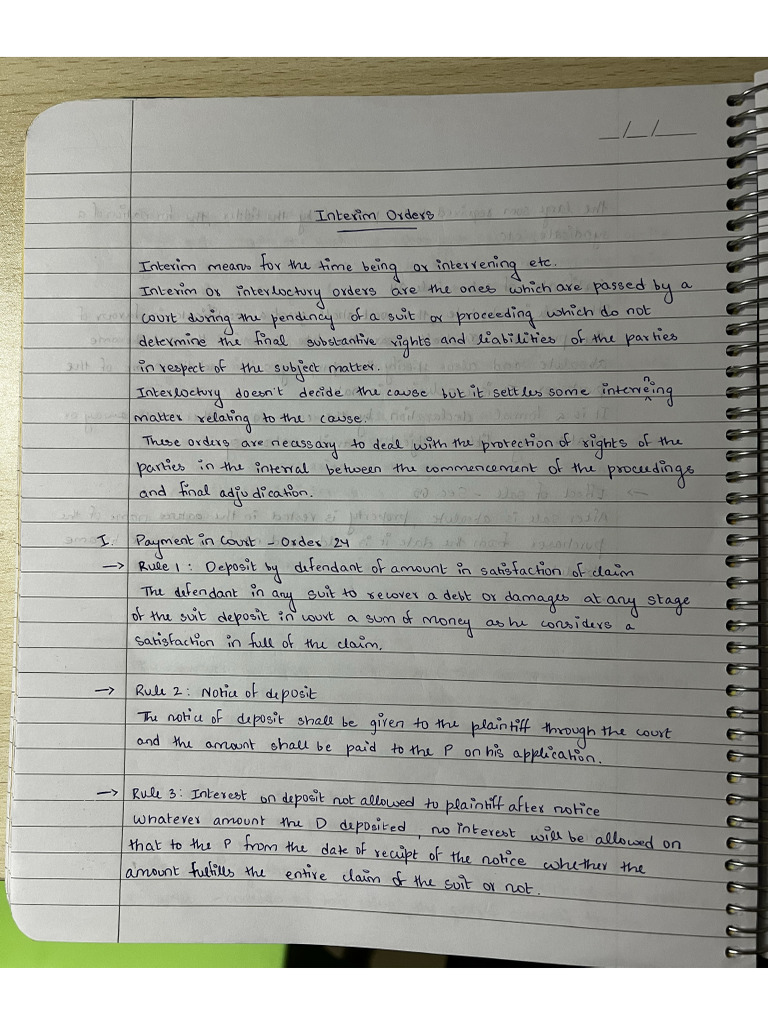 _/_/___
Interim Orders
Interim means for the time being or intervening etc.
Interim or interloctury orders are the ones which are passed by a
court during the pendency of a suit or proceeding which do not
determine the final substantive rights and liabilities of the parties
in respect of the subject matter.
Interloctury doesn't decide the cause but it settles some intervening
matter relating to the cause.
These orders are necassary to deal with the protection of rights of the
parties in the interval between the commencement of the proceedings
and final adjudication.
I. Payment in Court - Order 24
→ Rule 1: Deposit by defendant of amount in satisfaction of claim
The defendant in any suit to recover a debt or damages at any stage
of the suit deposit in court a sum of money as he considers a
satisfaction in full of the claim.
→ Rule 2: Notice of deposit
The notice of deposit shall be given to the plaintiff through the court
and the amount shall be paid to the P on his application.
→ Rule 3: Interest on deposit not allowed to plaintiff after notice
whatever amount the D deposited, no interest will be allowed on
that to the P from the date of receipt of the notice whether the
amount fulfills the entire claim of the suit or not.